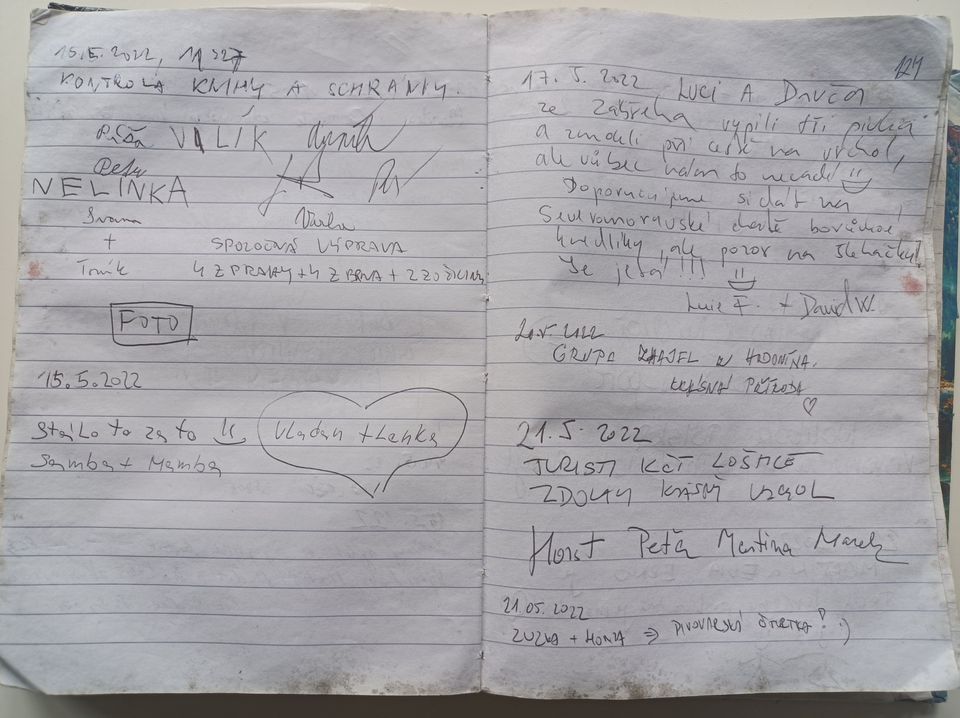 15.5.2022, 11
KONTROLA KNIHY A SCHRÁNKY.
Péťa VILÍK
Petr
NELINKA
Ivana
+ SPOLOČNÁ VÝPRAVA
Tomík 4 Z PRAHY + 4 Z BRNA + 2 ZO ŽILINY
FOTO
15.5.2022
Stálo to za to
Vladan + Lenka
Samba + Mamba
124
17. 5. 2022 LUCI A Davča
ze Zábřeha vypili tři pivka
a zmokli při cestě na vrchol,
ale vůbec nám to nevadí
Doporučujeme si dát na
Severomoravské chatě borůvkové
knedlíky, ale pozor na šlehačku!
Je jetá!!!
Lucie F. + David W.
20.5.2022
GRUPA Z HODONÍNA.
KRÁSNÁ PŘÍRODA
21.5. 2022
TURISTI KČT LOŠTICE
ZDOLALI KRÁSNÝ VRCHOL
Horst Peťa Martina Marek
21.05.2022
ZUZKA + HONZA ⇒ PIVOVARSKÁ ČTVRTKA! :)